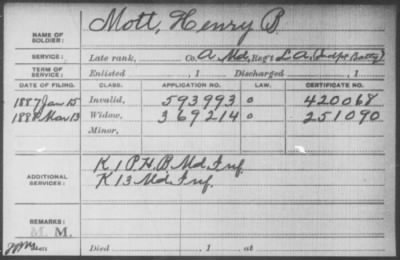 NAME OF SOLDIER: Mott, Henry B.
SERVICE: Late rank, Co. A Md. Reg't L.A. (Indpt Batty)
TERM OF SERVICE: Enlisted , 1 Discharged , 1
DATE OF FILING. CLASS. APPLICATION NO. LAW. CERTIFICATE NO.
1887 Jan 15 Invalid, 593993 o 420068
1888 Mar 13 Widow, 369214 o 251090
Minor,
ADDITIONAL SERVICES: K 1 P.H.B Md Inf.
K 13 Md Inf.
REMARKS: M. M.
Died , 1 , at